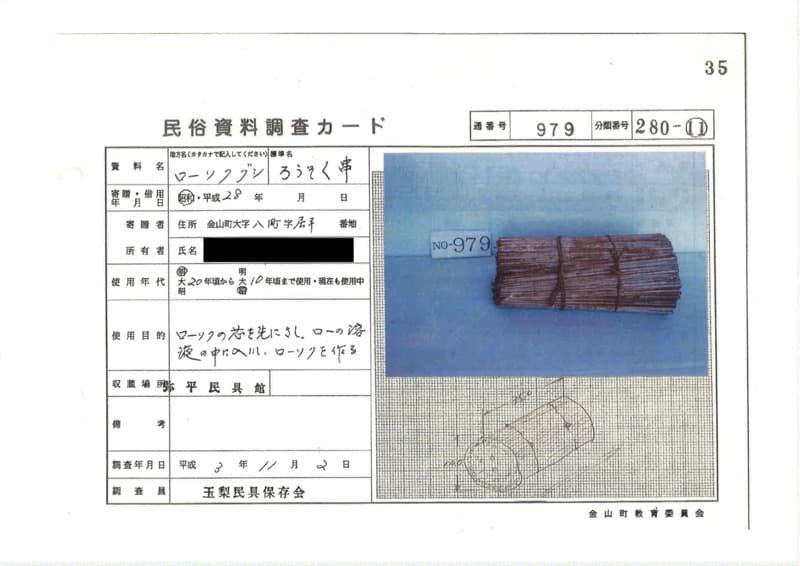 35
民俗資料調査カード
通番号 979 分類番号 280-11
資料名 地方名(カタカナで記入してください) ローソクグシ 標準名 ろうそく串
寄贈・借用年月日 昭和・平成 28年 月 日
寄贈者 住所 金山町大字八町字居平 番地
所有者 氏名
使用年代 明大昭 20年頃から 明大昭 10年頃まで使用・現在も使用中
使用目的 ローソクの芯を先にさし、ローの溶
液の中に入れ、ローソクを作る
収蔵場所 弥平民具館
備考
調査年月日 平成 3年 11月 2日
調査員 玉梨民具保存会
NO-979
350
金山町教育委員会